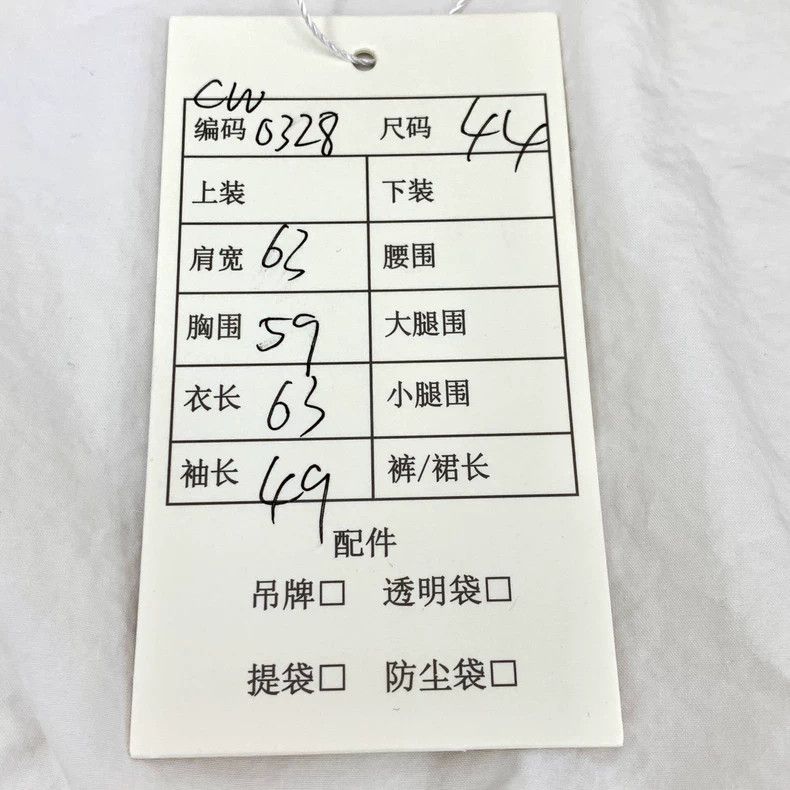 CW
编码 0328 尺码 44
上装 下装
肩宽 63 腰围
胸围 59 大腿围
衣长 63 小腿围
袖长 49 裤/裙长
配件
吊牌□ 透明袋□
提袋□ 防尘袋□